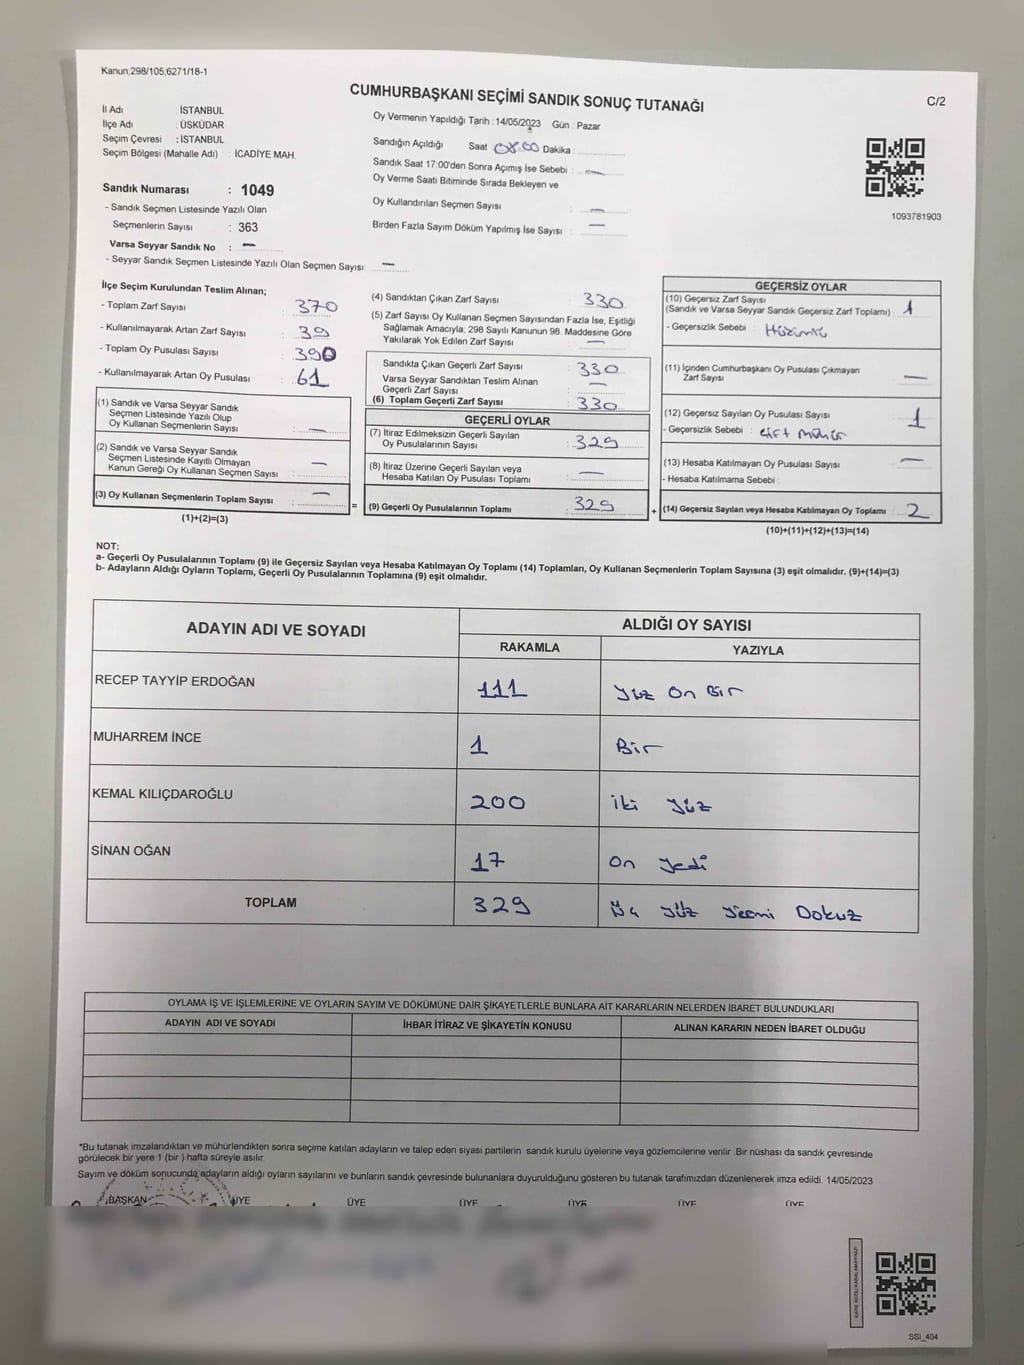 Kanun;298/105;6271/18-1
CUMHURBAŞKANI SEÇİMİ SANDIK SONUÇ TUTANAĞI
C/2
İl Adı : İSTANBUL
İlçe Adı : ÜSKÜDAR
Seçim Çevresi : İSTANBUL
Seçim Bölgesi (Mahalle Adı) : İCADİYE MAH.
Oy Vermenin Yapıldığı Tarih :14/05/2023 Gün : Pazar
Sandığın Açıldığı Saat 08.00 Dakika :
Sandık Saat 17:00'den Sonra Açımış İse Sebebi : —
Oy Verme Saati Bitiminde Sırada Bekleyen ve
Oy Kullandırılan Seçmen Sayısı : —
Birden Fazla Sayım Döküm Yapılmış İse Sayısı : —
1093781903
Sandık Numarası : 1049
- Sandık Seçmen Listesinde Yazılı Olan
Seçmenlerin Sayısı : 363
Varsa Seyyar Sandık No : —
- Seyyar Sandık Seçmen Listesinde Yazılı Olan Seçmen Sayısı: —
İlçe Seçim Kurulundan Teslim Alınan;
- Toplam Zarf Sayısı : 370
- Kullanılmayarak Artan Zarf Sayısı : 39
- Toplam Oy Pusulası Sayısı : 390
- Kullanılmayarak Artan Oy Pusulası : 61
(1) Sandık ve Varsa Seyyar Sandık
Seçmen Listesinde Yazılı Olup
Oy Kullanan Seçmenlerin Sayısı : —
(2) Sandık ve Varsa Seyyar Sandık
Seçmen Listesinde Kayıtlı Olmayan
Kanun Gereği Oy Kullanan Seçmen Sayısı : —
(3) Oy Kullanan Seçmenlerin Toplam Sayısı : —
(1)+(2)=(3)
(4) Sandıktan Çıkan Zarf Sayısı : 330
(5) Zarf Sayısı Oy Kullanan Seçmen Sayısından Fazla İse, Eşitliği
Sağlamak Amacıyla; 298 Sayılı Kanunun 98. Maddesine Göre
Yakılarak Yok Edilen Zarf Sayısı : —
Sandıkta Çıkan Geçerli Zarf Sayısı : 330
Varsa Seyyar Sandıktan Teslim Alınan
Geçerli Zarf Sayısı : —
(6) Toplam Geçerli Zarf Sayısı : 330
GEÇERLİ OYLAR
(7) İtiraz Edilmeksizin Geçerli Sayılan
Oy Pusulalarının Sayısı : 329
(8) İtiraz Üzerine Geçerli Sayılan veya
Hesaba Katılan Oy Pusulaları Toplamı : —
= (9) Geçerli Oy Pusulalarının Toplamı : 329
GEÇERSİZ OYLAR
(10) Geçersiz Zarf Sayısı
(Sandık ve Varsa Seyyar Sandık Geçersiz Zarf Toplamı) : 1
- Geçersizlik Sebebi :
(11) İçinden Cumhurbaşkanı Oy Pusulası Çıkmayan
Zarf Sayısı —
(12) Geçersiz Sayılan Oy Pusulası Sayısı 1
- Geçersizlik Sebebi : çift mühür
(13) Hesaba Katılmayan Oy Pusulası Sayısı —
- Hesaba Katılmama Sebebi :
+ (14) Geçersiz Sayılan veya Hesaba Katılmayan Oy Toplamı : 2
(10)+(11)+(12)+(13)=(14)
NOT:
a- Geçerli Oy Pusulalarının Toplamı (9) ile Geçersiz Sayılan veya Hesaba Katılmayan Oy Toplamı (14) Toplamları, Oy Kullanan Seçmenlerin Toplam Sayısına (3) eşit olmalıdır. (9)+(14)=(3)
b- Adayların Aldığı Oyların Toplamı, Geçerli Oy Pusulalarının Toplamına (9) eşit olmalıdır.
ADAYIN ADI VE SOYADI ALDIĞI OY SAYISI
RAKAMLA YAZIYLA
RECEP TAYYİP ERDOĞAN 111 Yüz On Bir
MUHARREM İNCE 1 Bir
KEMAL KILIÇDAROĞLU 200 iki yüz
SİNAN OĞAN 17 On yedi
TOPLAM 329 Üç yüz yirmi Dokuz
OYLAMA İŞ VE İŞLEMLERİNE VE OYLARIN SAYIM VE DÖKÜMÜNE DAİR ŞİKAYETLERLE BUNLARA AİT KARARLARIN NELERDEN İBARET BULUNDUKLARI
ADAYIN ADI VE SOYADI İHBAR İTİRAZ VE ŞİKAYETİN KONUSU ALINAN KARARIN NEDEN İBARET OLDUĞU
*Bu tutanak imzalandıktan ve mühürlendikten sonra seçime katılan adayların ve talep eden siyasi partilerin sandık kurulu üyelerine veya gözlemcilerine verilir .Bir nüshası da sandık çevresinde
görülecek bir yere 1 (bir ) hafta süreyle asılır.
Sayım ve döküm sonucunda adayların aldığı oyların sayılarını ve bunların sandık çevresinde bulunanlara duyurulduğunu gösteren bu tutanak tarafımızdan düzenlenerek imza edildi. 14/05/2023
BAŞKAN ÜYE ÜYE ÜYE ÜYE ÜYE ÜYE
SSI_404